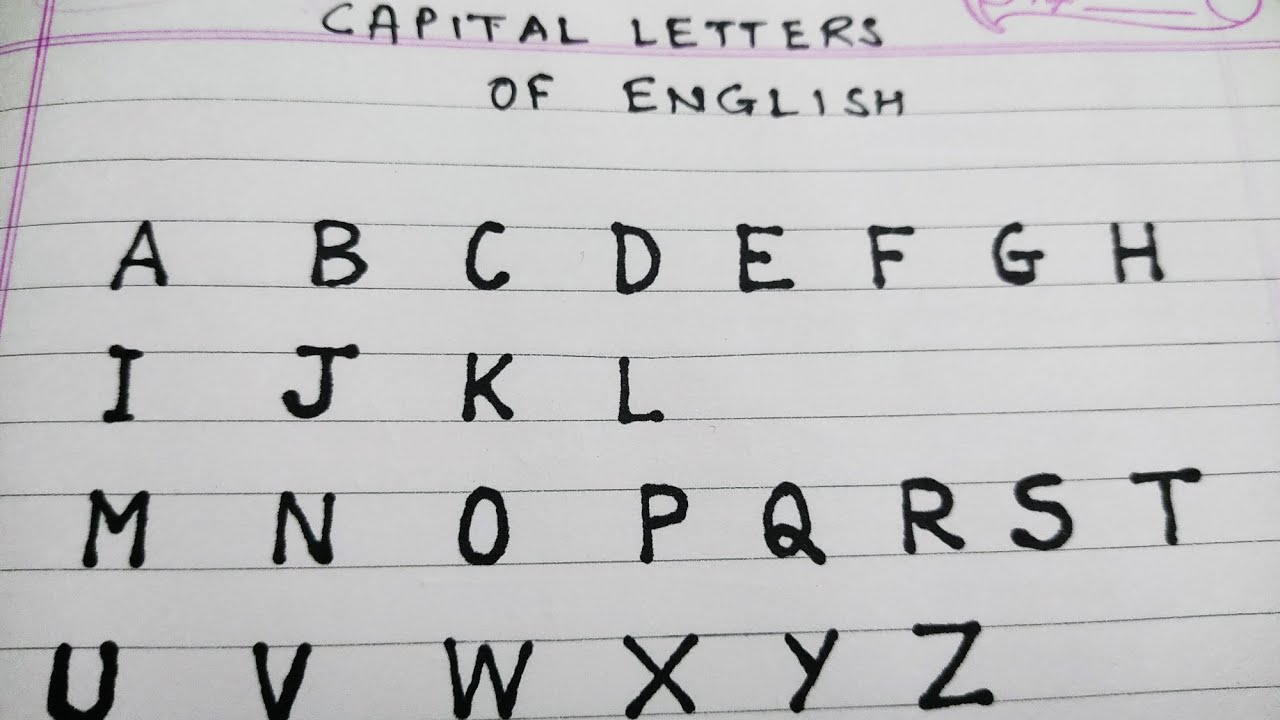 CAPITAL LETTERS
OF ENGLISH
A B C D E F G H
I J K L
M N O P Q R S T
U V W X Y Z